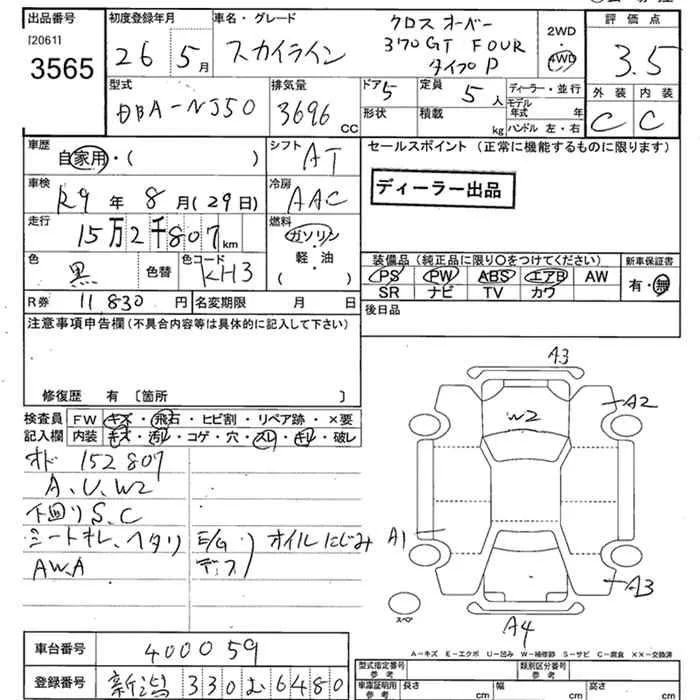 出品番号 初度登録年月 車名・グレード 評価点
[2061]
3565
26年 5月 スカイライン
クロスオーバー
370GT FOUR
タイプP
2WD
4WD
3.5
型式 排気量 ドア 定員 ディーラー・並行 外装 内装
DBA-NJ50 3696 CC 5 5人 モデル年式 年
形状 積載 kg ハンドル 左・右 C C
車歴 自家用・( ) シフト AT セールスポイント (正常に機能するものに限ります)
車検 R9年 8月(29日) 冷房 AAC ディーラー出品
走行 15万2千807km 燃料 ガソリン・軽油 ( )
色 黒 色替 色コード KH3 装備品 (純正品に限り〇をつけてください) 新車保証書
PS PW ABS エアB AW 有・無
SR ナビ TV カワ
R券 11830円 名変期限 月 日 後日品
注意事項申告欄 (不具合内容等は具体的に記入して下さい)
修復歴 有 〔箇所 〕
検査員 FW キズ・飛石・ヒビ割・リペア跡・×要
記入欄 内装 キズ・汚レ・コゲ・穴・スレ・キレ・破レ
オド 152807
A、U、W2
下回りS、C
シートキレ、ヘタリ E/G オイルにじみ
AWA デフ
A3
A2
W2
A1
A3
A4
スペア
A-キズ E-エクボ U-凹み W-補修跡 S-サビ C-腐食 ××-交換済
車台番号 400059
登録番号 新潟 330む6480
型式指定番号 参考 類別区分番号 参考
車庫証明用 参考 長さ cm 幅 cm 高さ cm